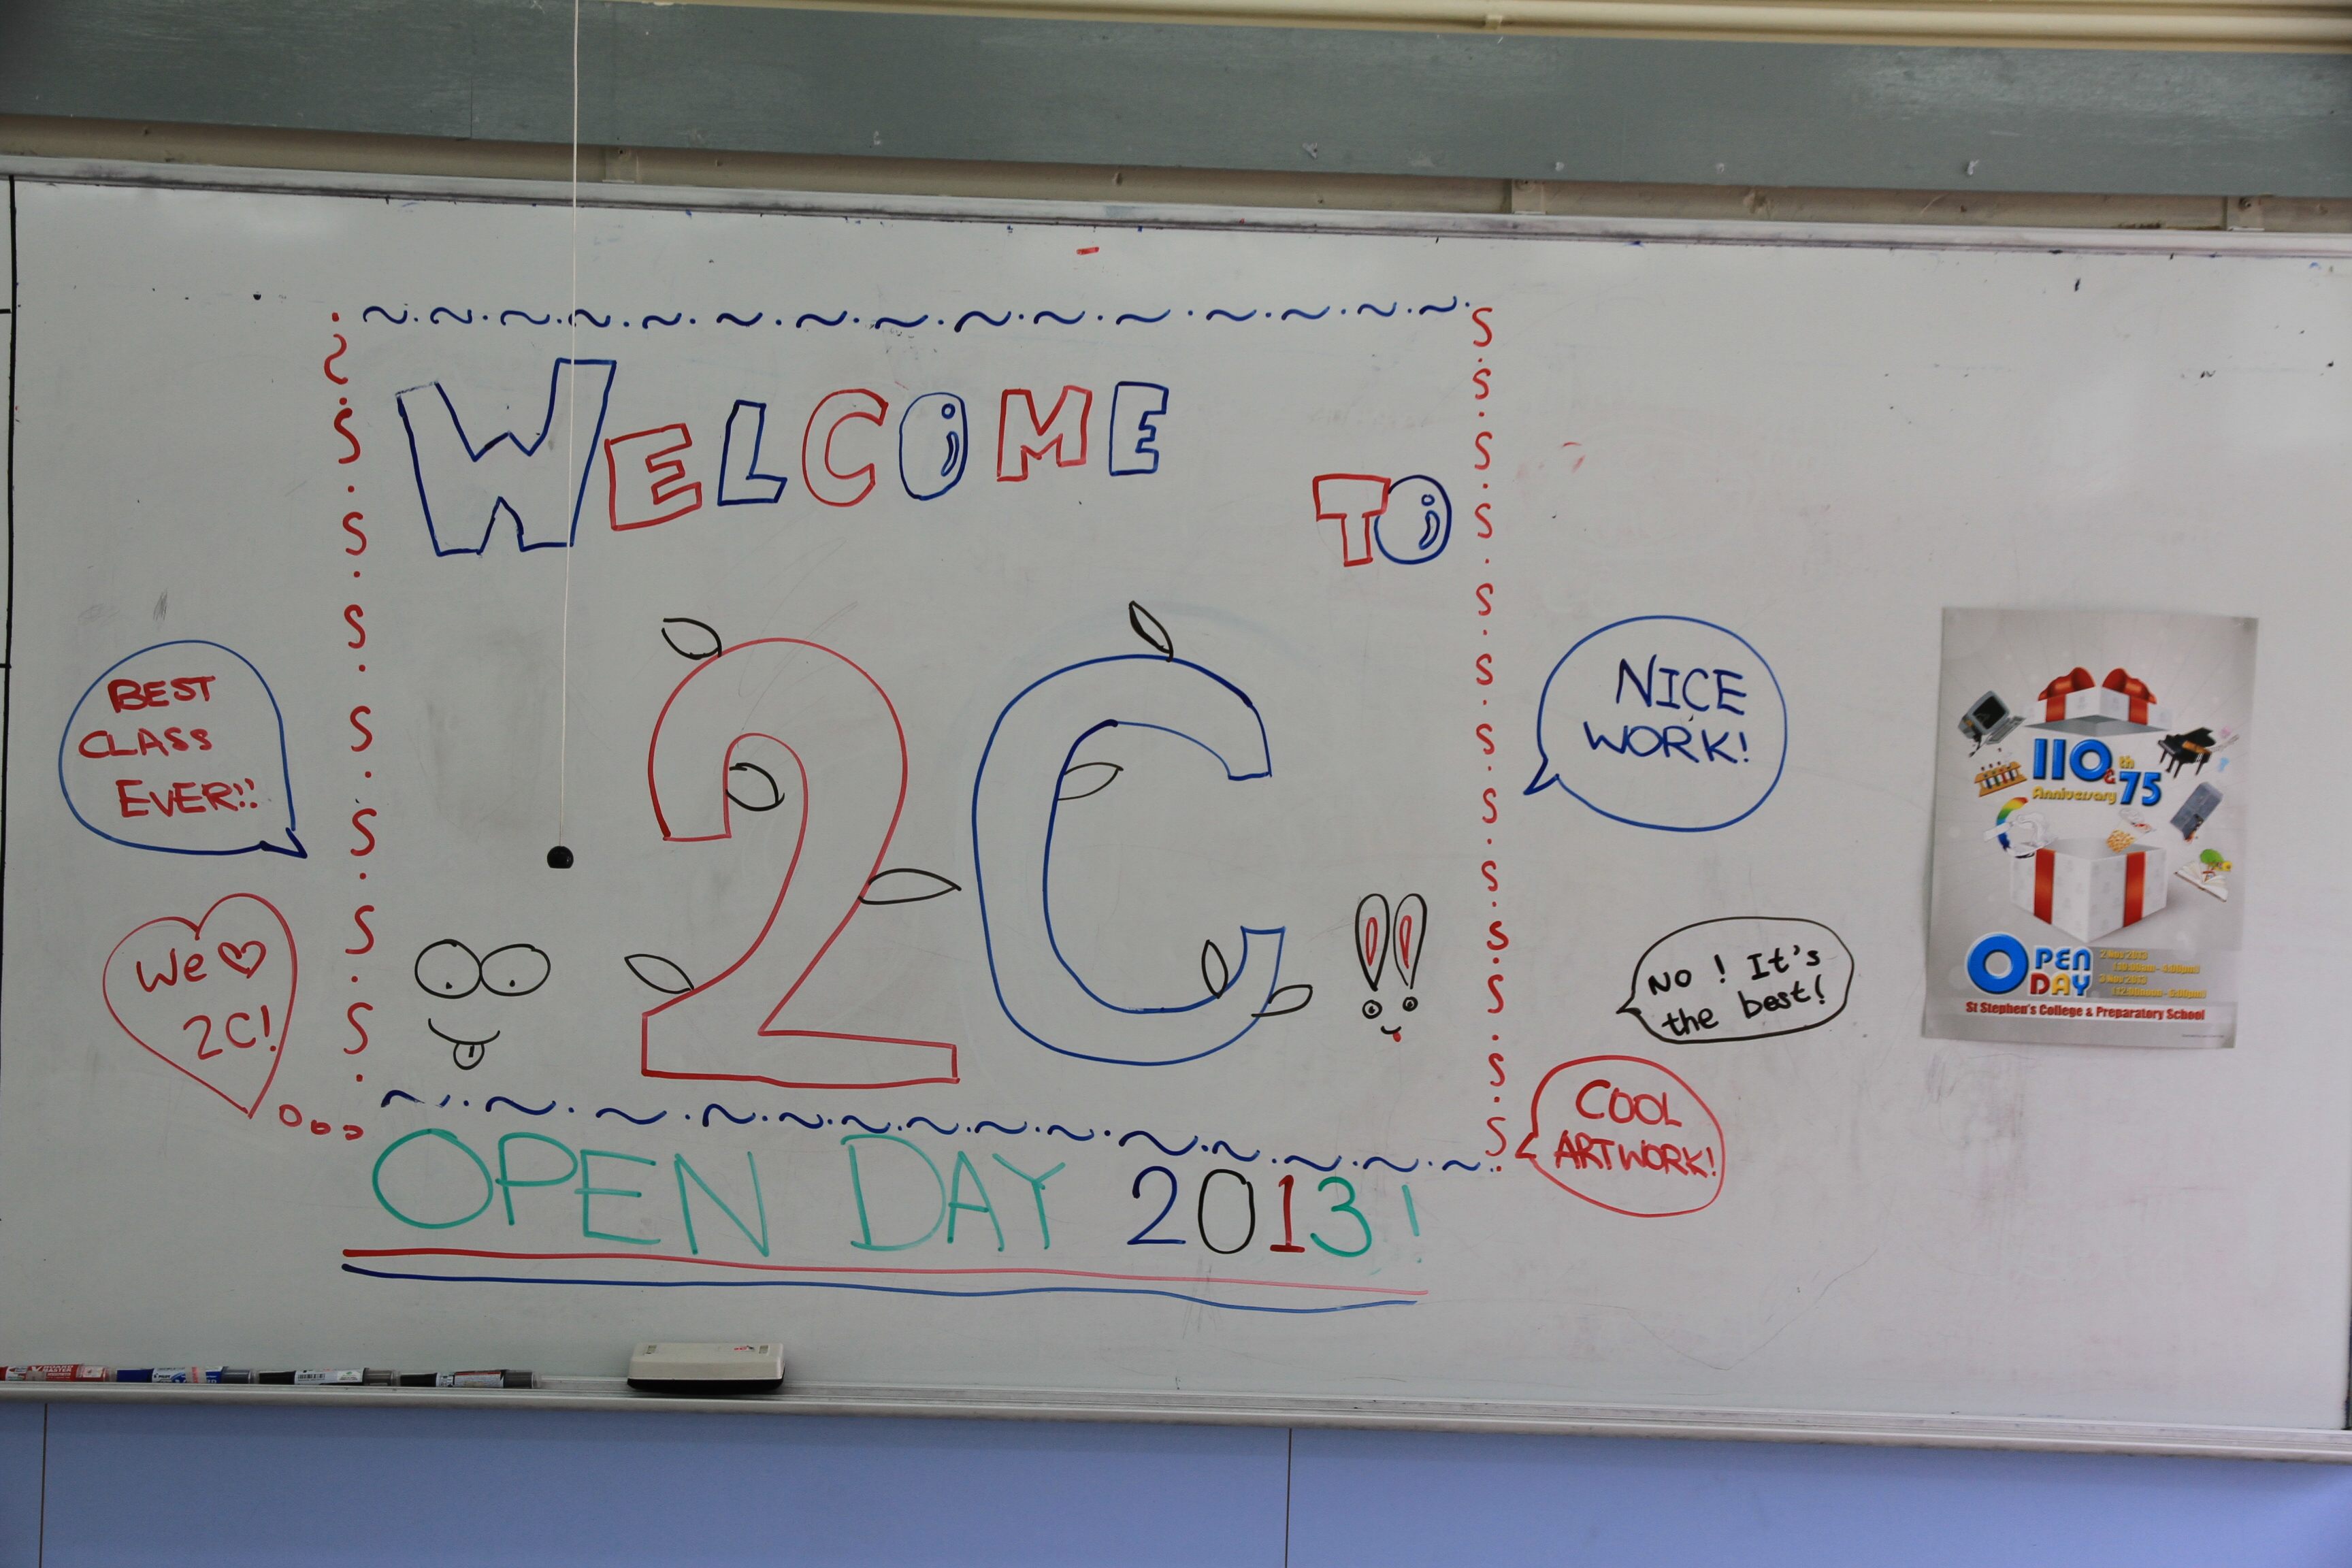 WELCOME
TO
2C
BEST
CLASS
EVER!!
We ♡
2C!
NICE
WORK!
No! It's
the best!
COOL
ARTWORK!
OPEN DAY 2013!
110th
& 75
Anniversary
OPEN
DAY
2 Nov 2013
3 Nov 2013
St Stephen's College & Preparatory School